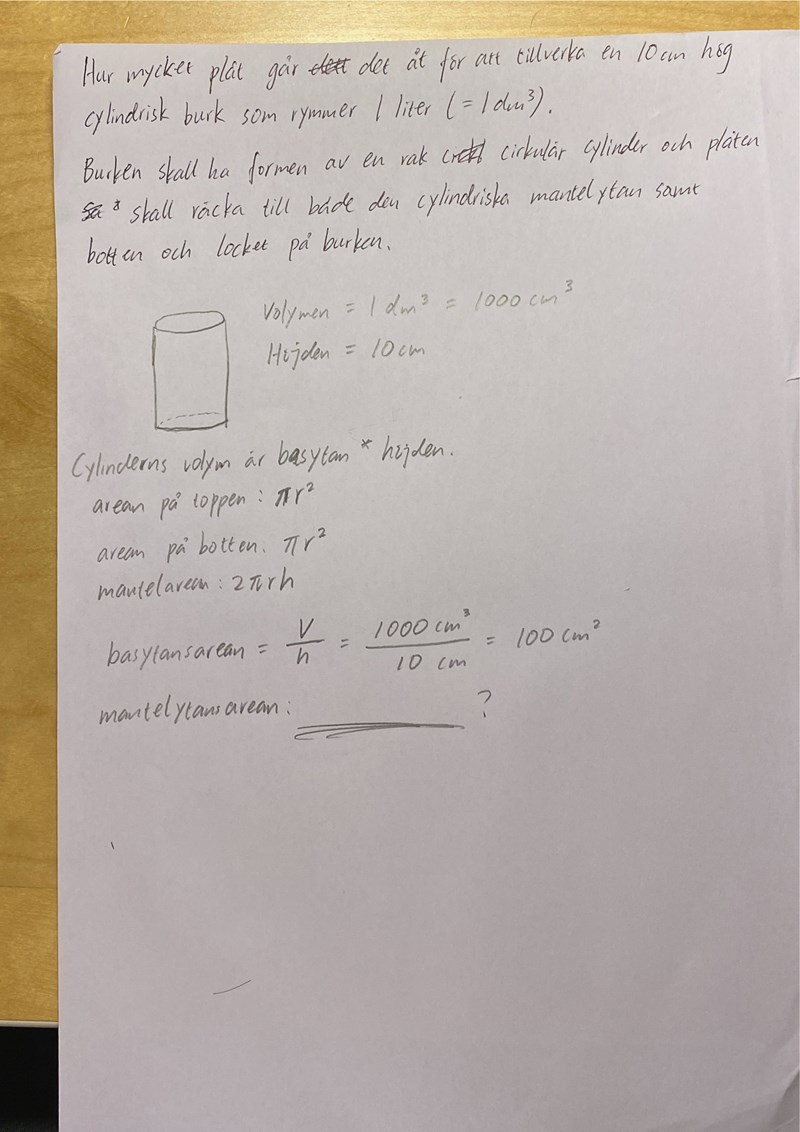 Hur mycket plåt går dett det åt för att tillverka en 10 cm hög
cylindrisk burk som rymmer 1 liter (= 1 dm³).
Burken skall ha formen av en rak cirkulär cylinder och plåten
skall räcka till både den cylindriska mantelytan samt
botten och locket på burken.
Volymen = 1 dm³ = 1000 cm³
Höjden = 10 cm
Cylinderns volym är basytan * höjden.
arean på toppen: πr²
arean på botten: πr²
mantelarean: 2πrh
basytansarean = V/h = 1000 cm³/10 cm = 100 cm²
mantelytansarean: ?